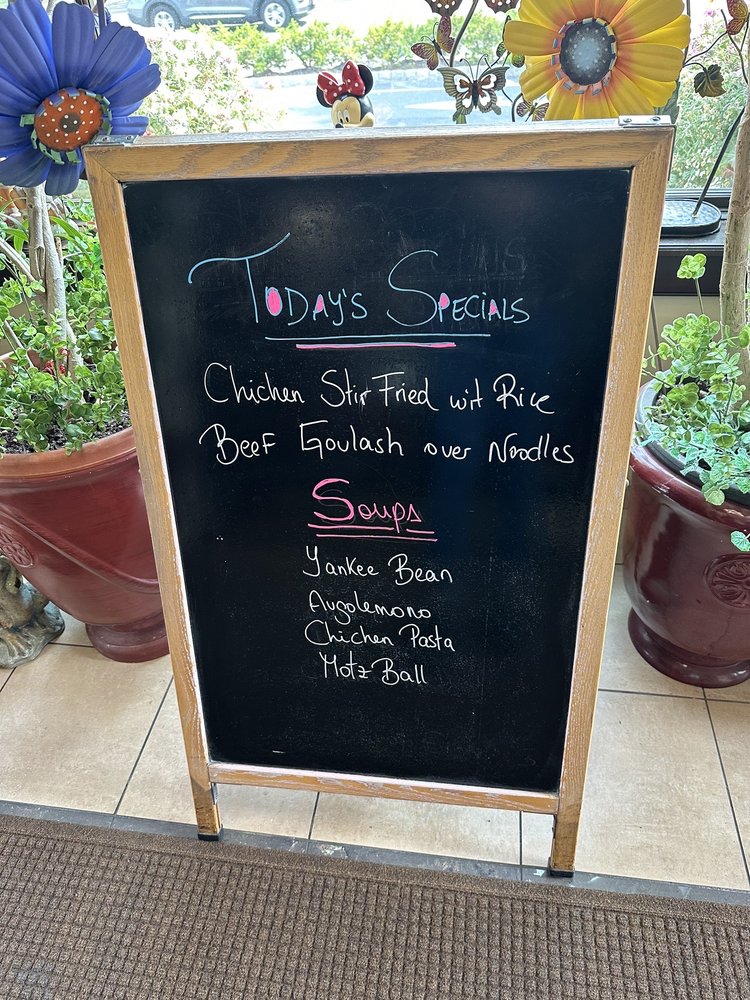 Today's Specials
Chichen Stir Fried wit Rice
Beef Goulash over Noodles
Soups
Yankee Bean
Augolemono
Chichen Pasta
Motz Ball